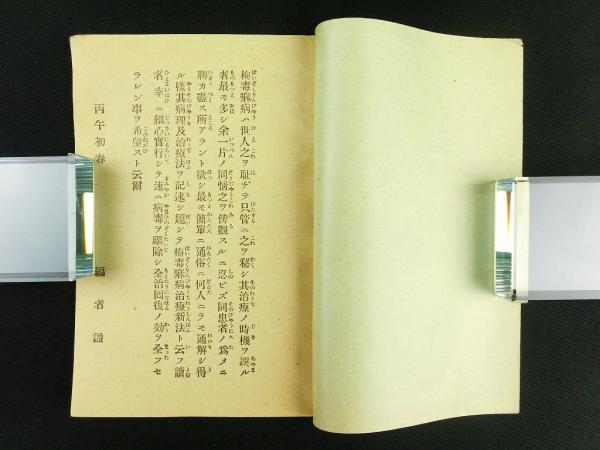 梅毒痳病ハ世人之ヲ恥ヂラ只管ニ之ヲ秘シ其治療ノ時機ヲ誤ル
者最モ多シ余一片ノ同情之ヲ傍觀スルニ忍ビズ同患者ノ爲メニ
聊カ盡ス所アラント欲シ最モ簡單ニ通俗ニ何人ニテモ通解シ得
ル樣其病理及治療法ヲ記述シ題シテ梅毒痳病治療新法ト云フ讀
者幸ニ細心實行シテ速ニ病毒ヲ驅除シ全治囘復ノ効ヲ全フセ
ラレン事ヲ希望スト云爾
丙午初春
編者識